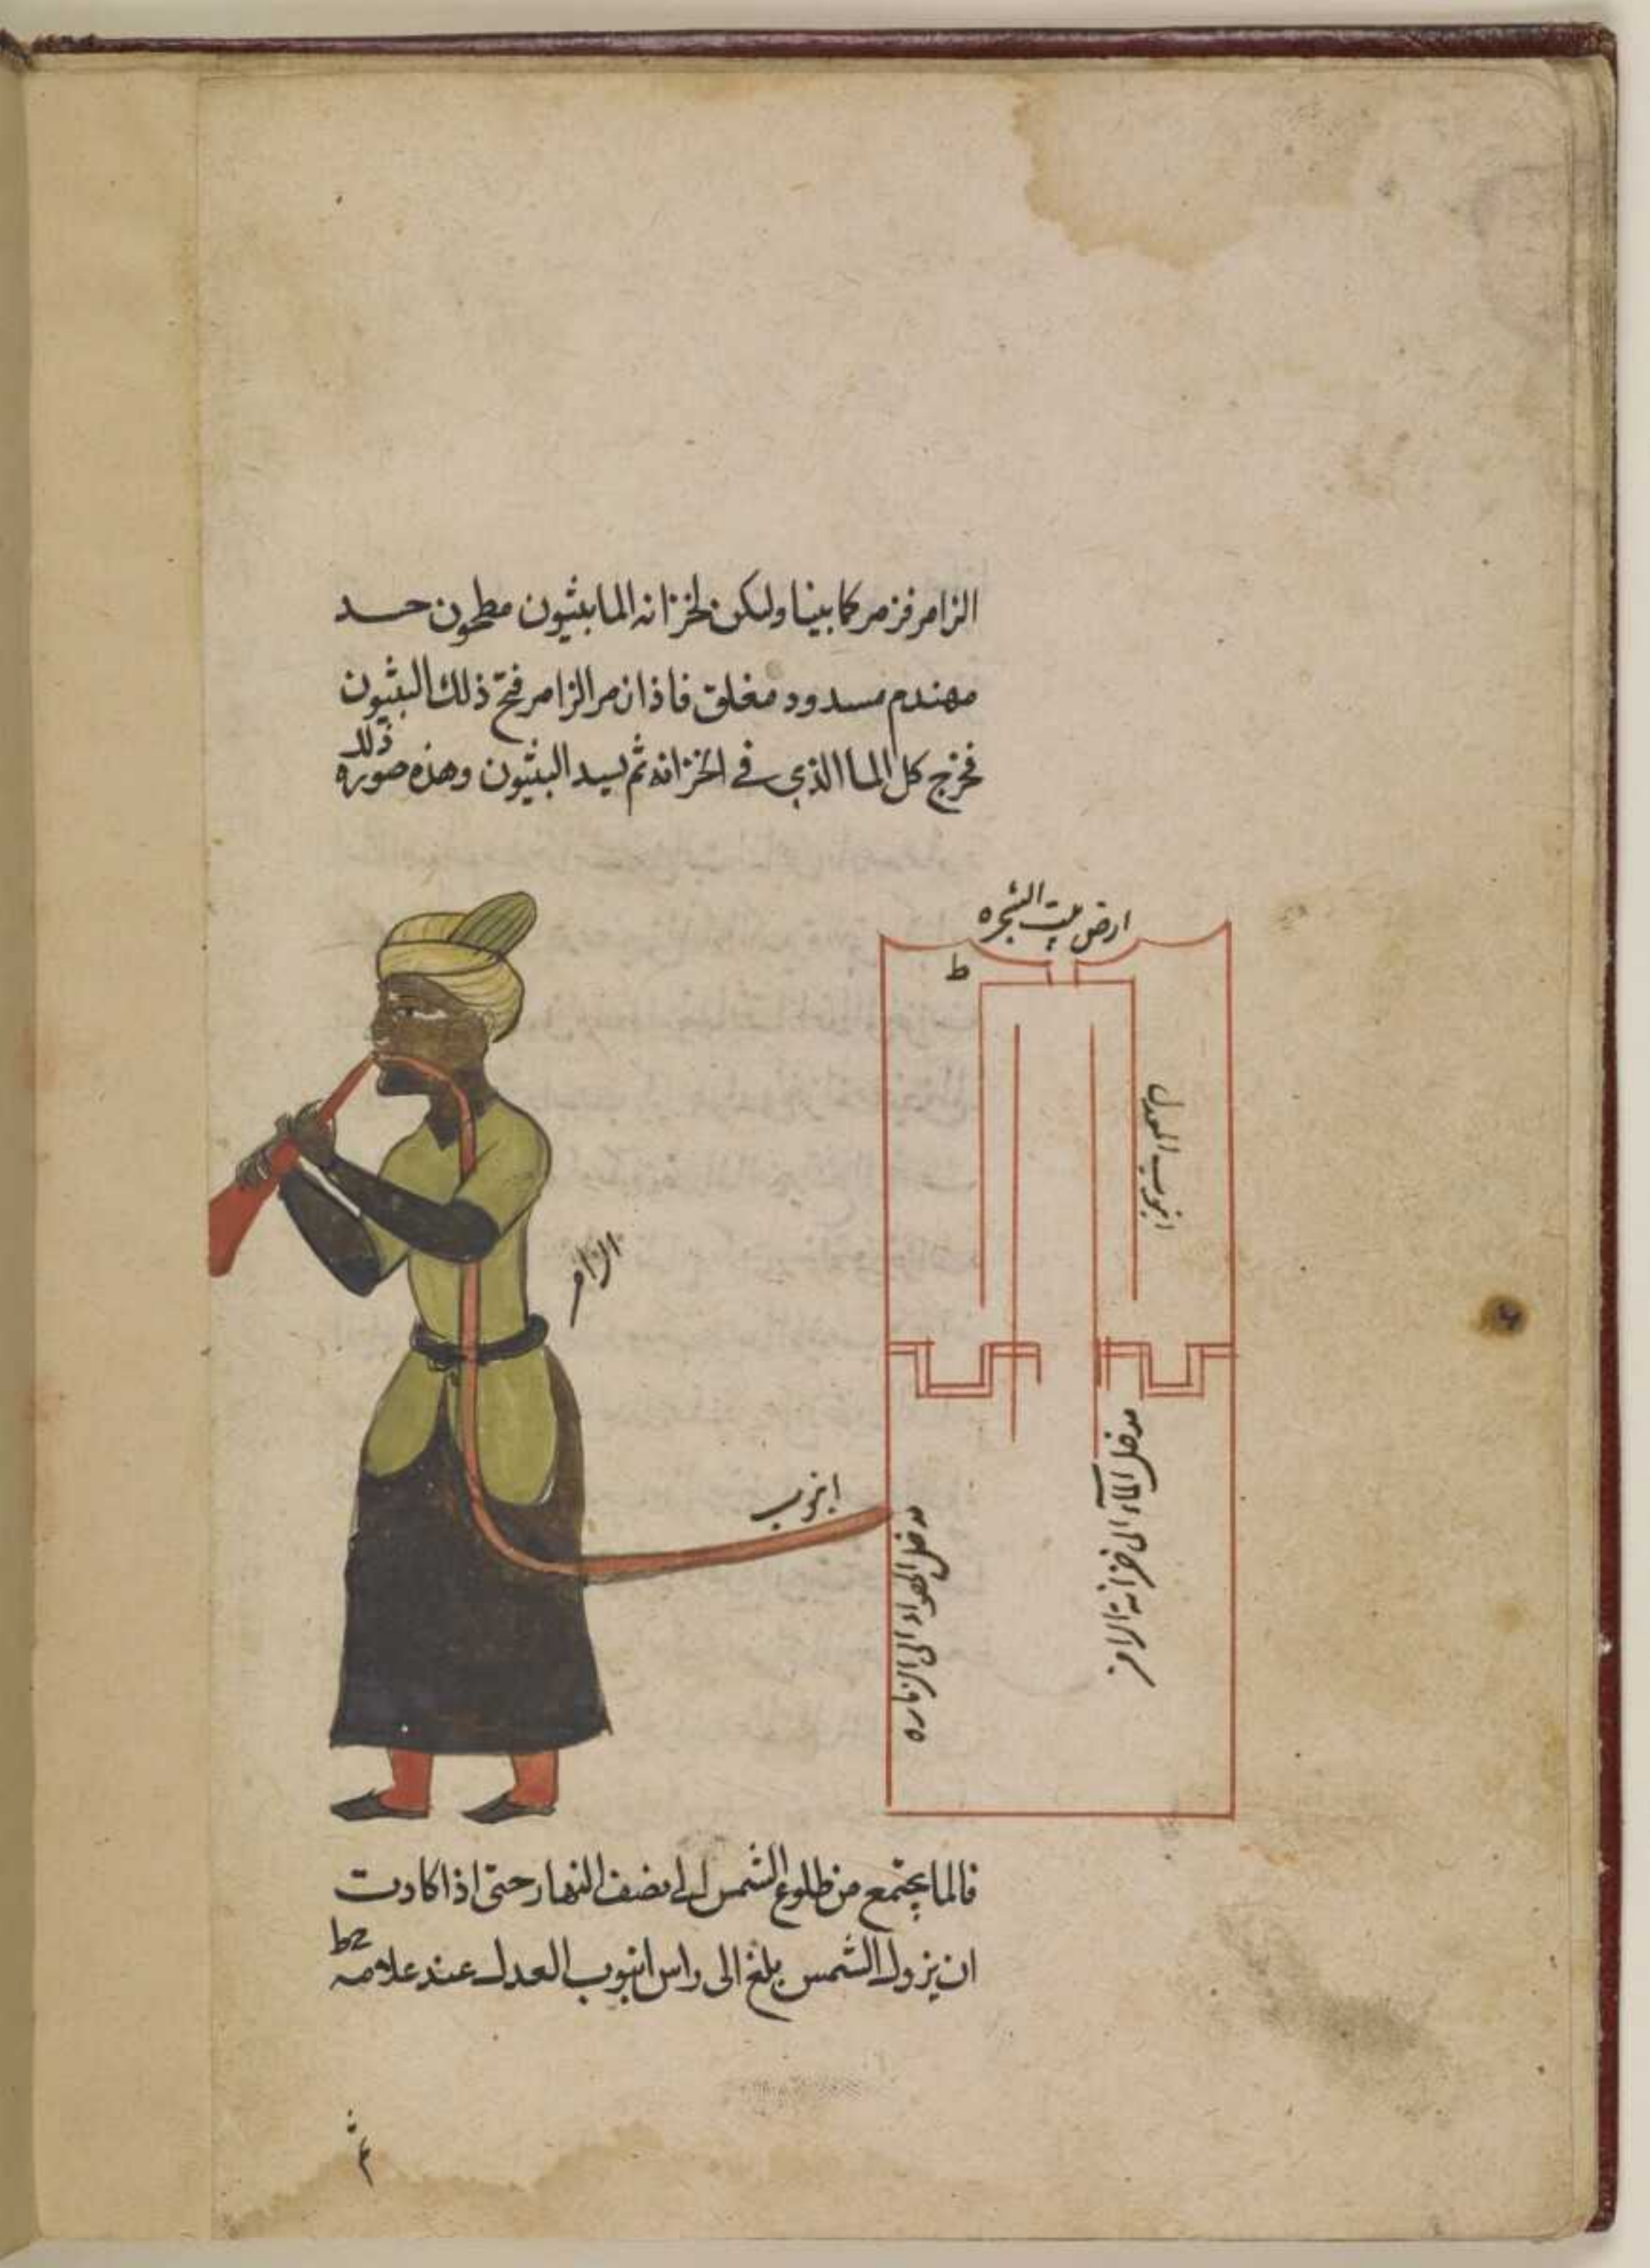 الزامر فزمر كما بينا وليكن لخزانه الما بثيون مطحون حسد
مهندم مسدود مغلق فاذا زمر الزامر فتح ذلك البثيون
فخرج كل الما الذي في الخزانه ثم يسد البثيون وهذه صوره ذلك
ارض بيت الشجره
ط
انبوب العدل
الزامر
انبوب
مدخل الماء الى خزانة الزامر
فالما يجتمع من طلوع الشمس الى نصف النهار حتى اذا كادت
ان يزول الشمس بلغ الى راس انبوب العدل عند علامه ط
ثم